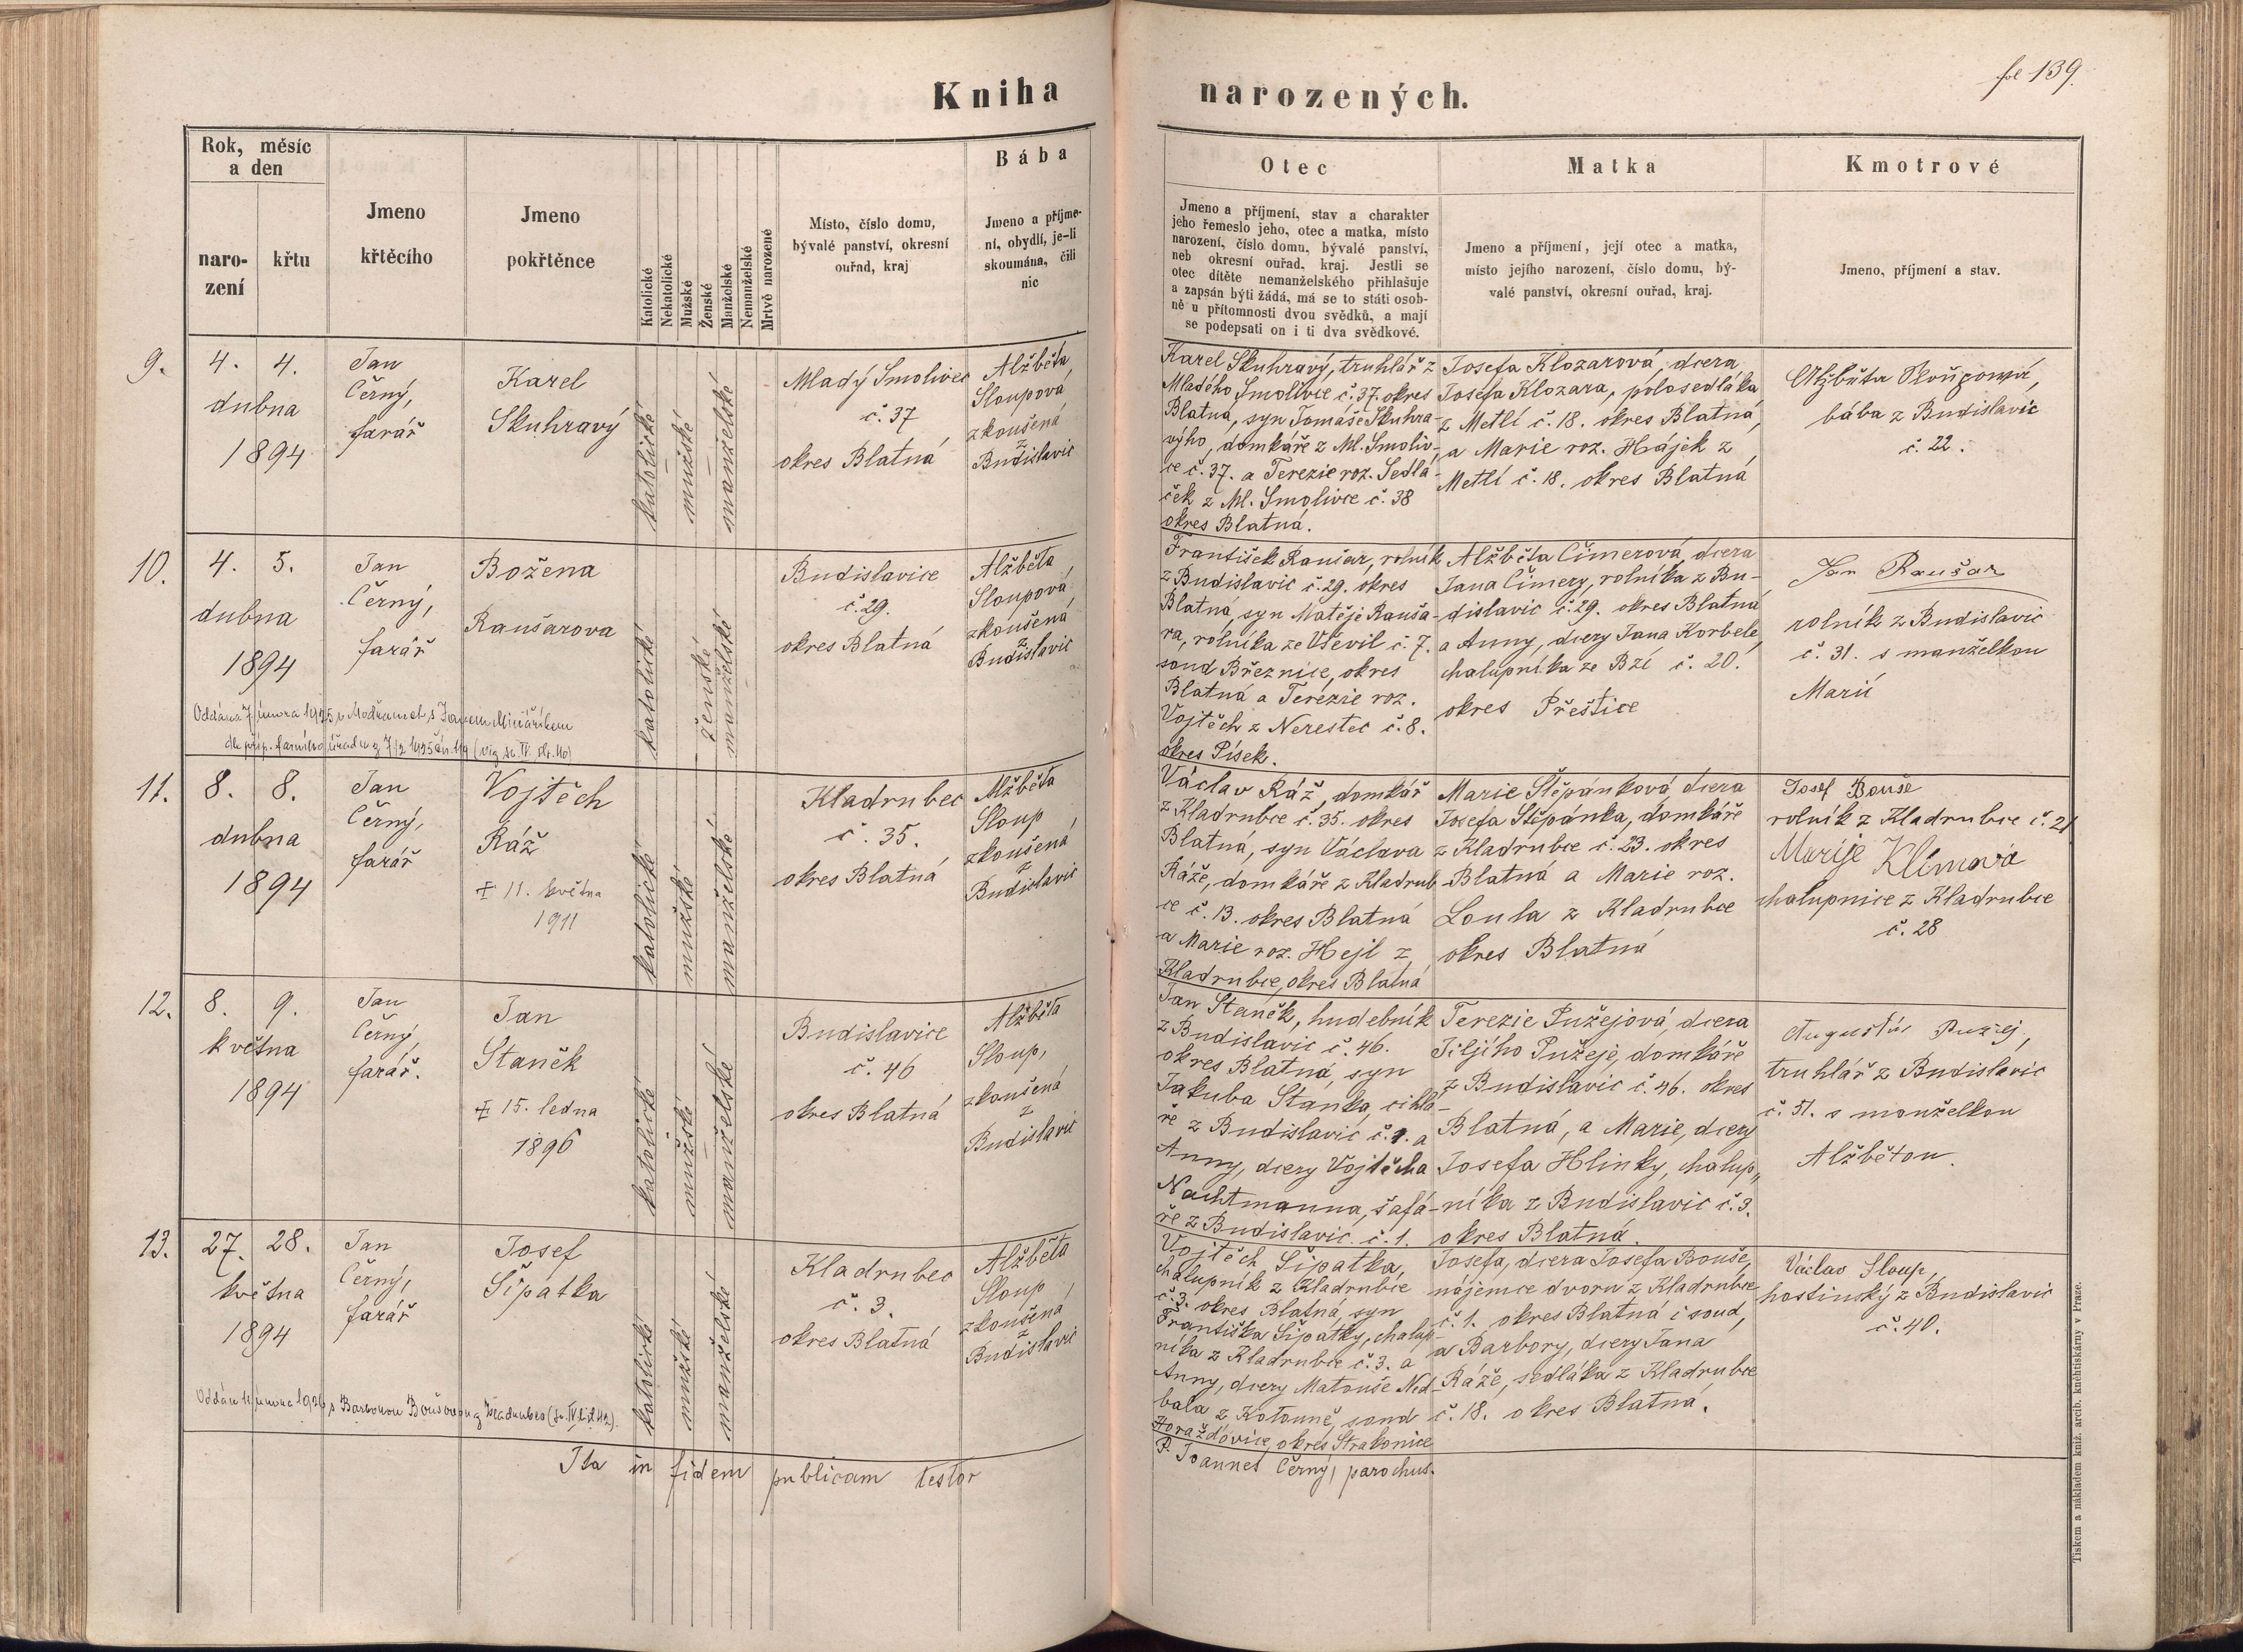 Kniha
narozených.
fol 139.
Rok, měsíc
a den
naro-
zení
křtu
Jmeno
křtěcího
Jmeno
pokřtěnce
Katolické
Nekatolické
Mužské
Ženské
Manželské
Nemanželské
Mrtvě narozené
Místo, číslo domu,
bývalé panství, okresní
ouřad, kraj
Bába
Jmeno a příjme-
ní, obydlí, je-li
skoumána, čili
nic
Otec
Jmeno a příjmení, stav a charakter
jeho řemeslo jeho, otec a matka, místo
narození, číslo domu, bývalé panství,
neb okresní ouřad, kraj. Jestli se
otec dítěte nemanželského přihlašuje
a zapsán býti žádá, má se to státi osob-
ně u přítomnosti dvou svědků, a mají
se podepsati on i ti dva svědkové.
Matka
Jmeno a příjmení, její otec a matka,
místo jejího narození, číslo domu, bý-
valé panství, okresní ouřad, kraj.
Kmotrové
Jmeno, příjmení a stav.
9.
4. 4.
dubna
1894
Jan
Černý,
farář
Karel
Skuhravý
katolické
mužské
manželské
Mladý Smolivec
č. 37
okres Blatná
Alžběta
Sloupová
zkoušená
z
Budislavic
Karel Skuhravý, truhlář z
Mladého Smolivce č. 37. okres
Blatná, syn Tomáše Skuhra-
výho, domkáře z Ml. Smoliv-
ce č. 37. a Terezie roz. Sedlá-
ček z Ml. Smolivce č. 38
okres Blatná.
Josefa Klozarová, dcera
Josefa Klozara, polosedláka
z Metlí č. 18. okres Blatná,
a Marie roz. Hájek z
Metlí č. 18. okres Blatná
Alžběta Sloupová,
bába z Budislavic
č. 22.
10.
4. 5.
dubna
1894
Jan
Černý,
farář
Božena
Raušarova
katolické
ženské
manželské
Budislavice
č. 29.
okres Blatná
Alžběta
Sloupová
zkoušená
z
Budislavic
František Raušar, rolník
z Budislavic č. 29. okres
Blatná, syn Matěje Rauša-
ra, rolníka ze Uševil č. 7.
soud Březnice, okres
Blatná a Terezie roz.
Vojtěch z Nerestec č. 8.
okres Písek.
Alžběta Čimerová, dcera
Jana Čimery, rolníka z Bu-
dislavic č. 29. okres Blatná
a Anny, dcery Jana Korbele,
chalupníka ze Bzí č. 20.
okres Přeštice
Jan Raušar
rolník z Budislavic
č. 31. s manželkou
Marií
Oddána 7 února 1925 v Modřanech s Janem
dle příp. farního úřadu z 7/2 1925 čís. 119 (viz sv. IV. str. 40)
11.
8. 8.
dubna
1894
Jan
Černý,
farář
Vojtěch
Ráž
‡ 11. května
1911
katolické
mužské
manželské
Kladrubec
č. 35.
okres Blatná
Alžběta
Sloup
zkoušená
z
Budislavic
Václav Ráž, domkář
z Kladrubce č. 35. okres
Blatná, syn Václava
Ráže, domkáře z Kladrub-
ce č. 13. okres Blatná
a Marie roz. Hejl z
Kladrubce, okres Blatná
Marie Štěpánková, dcera
Josefa Štěpánka, domkáře
z Kladrubce č. 23. okres
Blatná a Marie roz.
Loula z Kladrubce
okres Blatná
Josef Bouše
rolník z Kladrubce č. 21
Marije Klímová
chalupnice z Kladrubce
č. 28
12.
8. 9.
května
1894
Jan
Černý,
farář.
Jan
Staněk
‡ 15. ledna
1896
katolické
mužské
manželské
Budislavice
č. 46
okres Blatná
Alžběta
Sloup,
zkoušená
z
Budislavic
Jan Staněk, hudebník
z Budislavic č. 46.
okres Blatná, syn
Jakuba Staňka, cihlá-
ře z Budislavic č. 1. a
Anny, dcery Vojtěcha
Nachtmanna, šafá-
ře z Budislavic č. 1.
Terezie Pužejová, dcera
Jiljího Pužeje, domkáře
z Budislavic č. 46. okres
Blatná, a Marie, dcery
Josefa Hlinky, chalup-
níka z Budislavic č. 3.
okres Blatná.
Augustin Pužej,
truhlář z Budislavic
č. 51. s manželkou
Alžbětou.
13.
27. 28.
května
1894
Jan
Černý,
farář
Josef
Šípatka
katolické
mužské
manželské
Kladrubec
č. 3.
okres Blatná
Alžběta
Sloup
zkoušená
z
Budislavic
Vojtěch Šípatka,
chalupník z Kladrubce
č. 3. okres Blatná, syn
Františka Šípatky, chalup-
níka z Kladrubce č. 3. a
Anny, dcery Matouše Ned-
bala z Kotouně, soud
Horažďovice, okres Strakonice
Josefa, dcera Josefa Bouše,
nájemce dvoru z Kladrubce
č. 1. okres Blatná i soud,
a Barbory, dcery Jana
Ráže, sedláka z Kladrubce
č. 18. okres Blatná.
Václav Sloup,
hostinský z Budislavic
č. 40.
Oddán února 1926 s Barborou Boušovou z Kladrubce (sv. IV. list 42).
Ita in fidem publicam testor
P. Joannes Černý, parochus.
Tiskem a nákladem kníž. arcib. knehtiskárny v Praze.